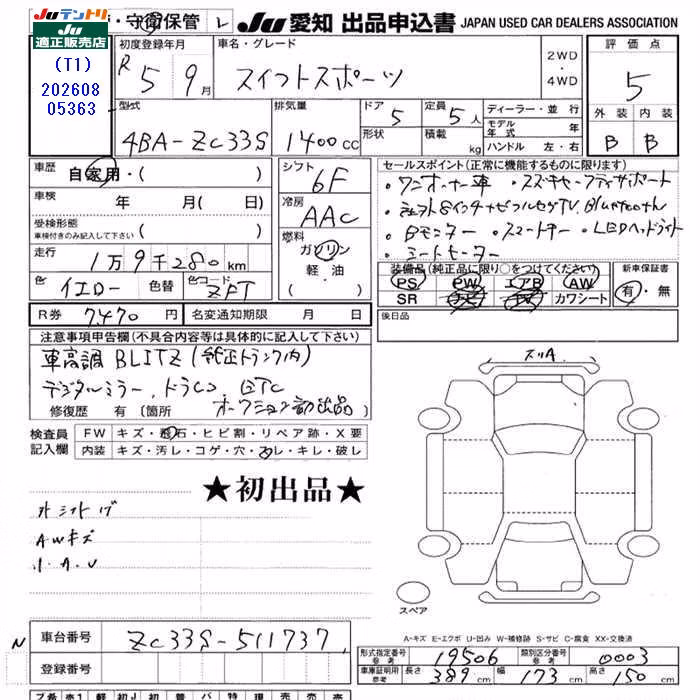 Juテントリ
Ju
適正販売店
(T1)
202608
05363
・守衛保管 レ
Ju 愛知 出品申込書 JAPAN USED CAR DEALERS ASSOCIATION
初度登録年月
R 5 9月
車名・グレード
スイフトスポーツ
2WD
・
4WD
評価点
5
外装 内装
B B
型式
4BA-ZC33S
排気量
1400CC
ドア 5
形状
定員 5人
積載 kg
ディーラー・並行
モデル年式 年
ハンドル 左・右
車歴 自家用・( )
車検 年 月( 日)
受検形態
車検付きのみ記入して下さい ( )
走行 1万9千280km
色 イエロー 色替 色コード ZFT
シフト
6F
冷房
AAC
燃料
ガソリン
軽油
( ・ )
セールスポイント(正常に機能するものに限ります)
・ワンオーナー車 ・スズキセーフティサポート
・Bモニター ・スマートキー ・LEDヘッドライト
・シートヒーター
装備品(純正品に限り○をつけてください)
PS PW エアB AW
SR ナビ TV カワシート
新車保証書
有・無
後日品
R券 7,470円 名変通知期限 月 日
注意事項申告欄(不具合内容等は具体的に記入して下さい)
車高調 BLITZ(純正トランク内)
デジタルミラー、ドラレコ ETC
修復歴 有 〔箇所
検査員記入欄
FW キズ・飛石・ヒビ割・リペア跡・X要
内装 キズ・汚レ・コゲ・穴・スレ・キレ・破レ
★初出品★
AWキズ
小A.U
スリA
スペア
A-キズ E-エクボ U-凹み W-補修跡 S-サビ C-腐食 XX-交換済
N 車台番号 ZC33S-511737
登録番号
形式指定番号 参考 19506 類別区分番号 参考 0003
車庫証明用 参考 長さ 389 幅 173 高さ 150